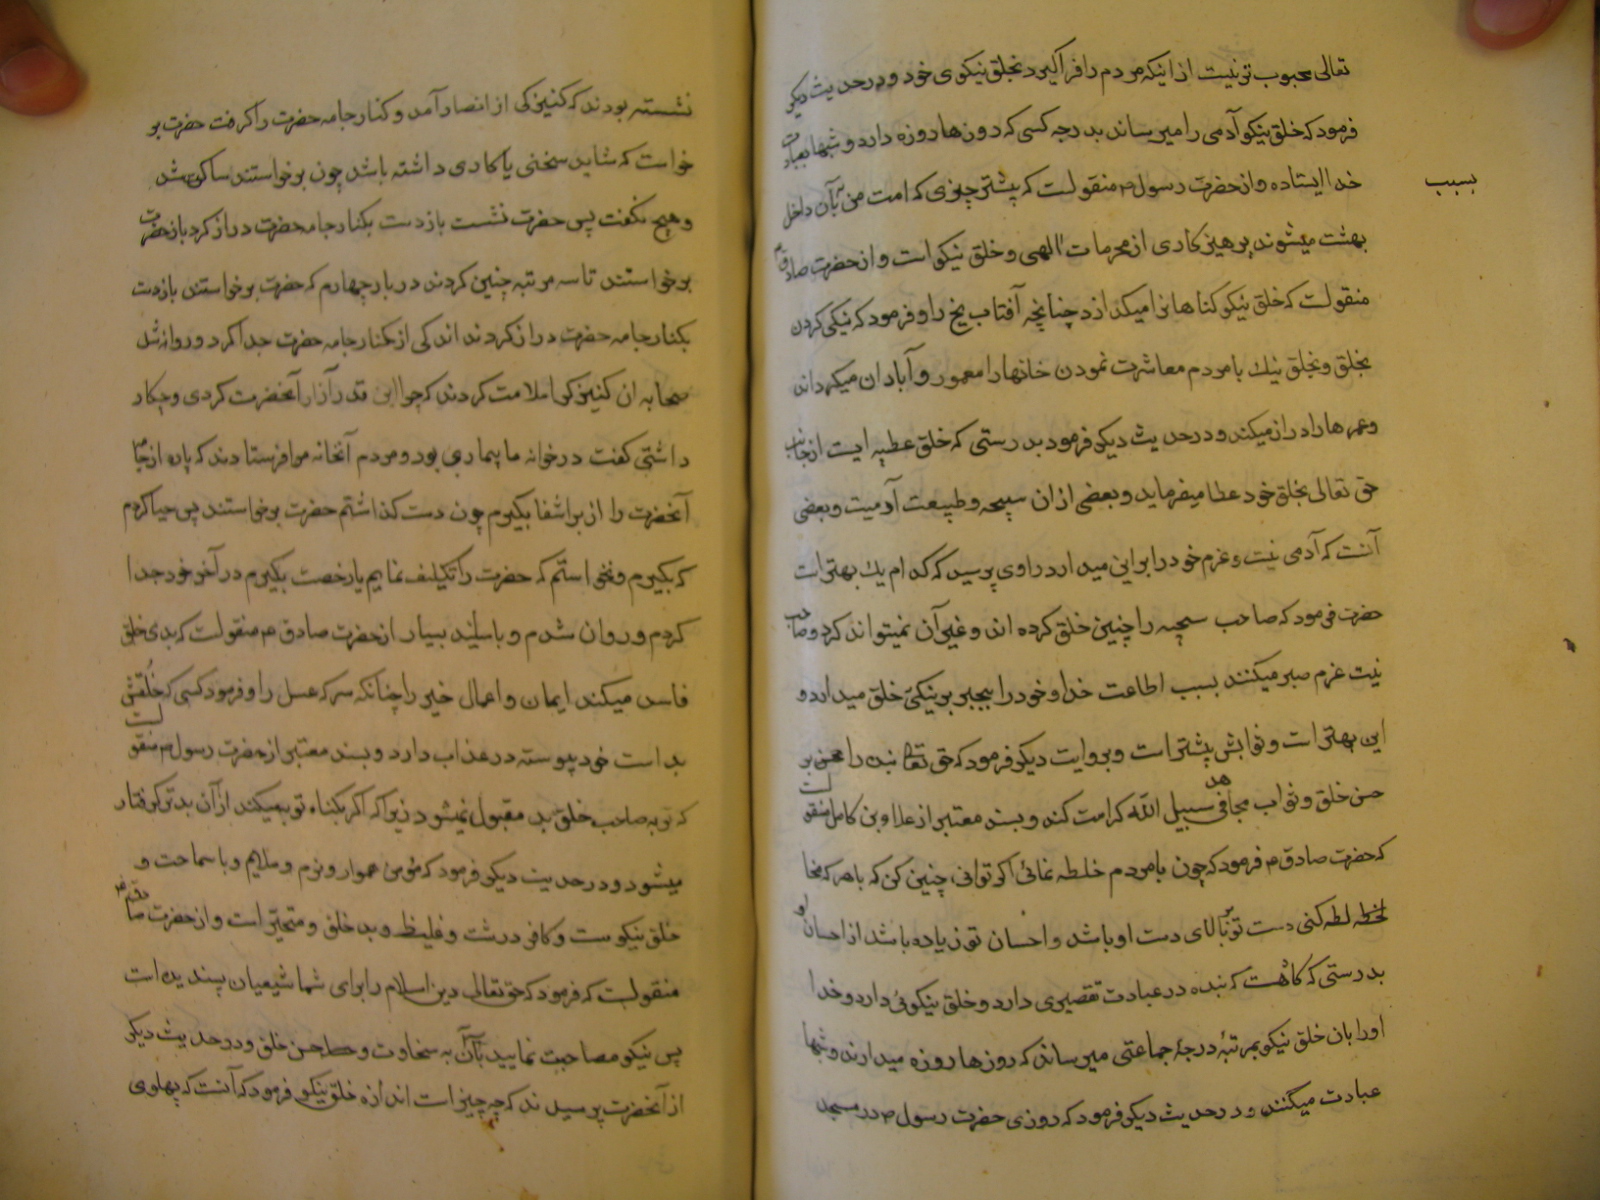 تعالی محبوب تر نیست از اینکه مردم را فرا گیرد بخلق نیکوی خود و در حدیث دیکر
فرمود که خلق نیکو آدمی را میرساند بدرجه کسی که روزها روزه دارد و شبها بعبادت
خدا ایستاده و از حضرت رسول ص منقولست که پیشتر چیزی که امت من بآن داخل
بسبب
بهشت میشوند پرهیزکاری از محرمات الهی و خلق نیکو است و از حضرت صادق ع
منقولست که خلق نیکو کناهانرا میکدازد چنانچه آفتاب یخ را و فرمود که نیکی کردن
بخلق و بخلق نیك با مردم معاشرت نمودن خانها را معمور و آبادان میکرداند
و عمرها را دراز میکند و در حدیث دیکر فرمود بدرستی که خلق عطیه ایست از جانب
حق تعالی بخلق خود عطا میفرماید و بعضی از ان سجیه و طبیعت آدمیست و بعضی
آنست که آدمی نیت و عزم خود را بر این میدارد راوی پرسید که کدام یك بهتر است
حضرت فرمود که صاحب سجیه را چنین خلق کرده اند و غیر آن نمیتواند کرد و صاحب
نیت عزم صبر میکنند بسبب اطاعت خدا و خود را بجبر بر نیکی خلق میدارد و
این بهتر است و ثوابش پیشتر است و بروایت دیکر فرمود که حق تعالی بنده را بر
حسن خلق و ثواب مجاهد فی سبیل الله کرامت کند و بسند معتبر از علاء بن کامل منقولست
که حضرت صادق ع فرمود که چون با مردم خلطه نمائی اکر توانی چنین کن که با هر که مخا
لطه کنی دست تو بر بالای دست او باشد و احسان تو زیاده باشد از احسان او
بدرستی که کاهست که بنده در عبادت تقصیری دارد و خلق نیکوئی دارد و خدا
او را بان خلق نیکو بمرتبهٔ درجهٔ جماعتی میرساند که روزها روزه میدارند و شبها
عبادت میکنند و در حدیث دیکر فرمود که روزی حضرت رسول ص در مسجد
نشسته بودند که کنیزکی از انصار آمد و کنار جامه حضرت را کرفت حضرت بر
خواست که شاید سخنی یا کاری داشته باشد چون برخواستند ساکت شد
و هیچ نکفت پس حضرت نشست باز دست بکنار جامه حضرت دراز کرد باز حضرت
برخواستند تا سه مرتبه چنین کردند در بار چهارم که حضرت برخواستند باز دست
بکنار جامه حضرت دراز کردند اندکی از کنار جامه حضرت جدا کرد و روانه شد
صحابه ان کنیزک را ملامت کردند که چرا این قدر آزار آنحضرت کردی و چکار
داشتی کفت در خوانه ما بیماری بود و مردم آنخانه مرا فرستادند که پاره از جامه
آنحضرت را از برا شفا بکیرم چون دست کذاشتم حضرت برخواستند پس حیا کردم
که بکیرم و نخواستم که حضرت را تکلیف نمایم یا رخصت بکیرم در آخر خود جدا
کردم و روان شدم و باسانید بسیار از حضرت صادق ع منقولست که بدی خلق
فاسد میکند ایمان و اعمال خیر را چنانکه سرکه عسل را و فرمود کسی که خُلقش
بد است خود پیوسته در عذاب دارد و بسند معتبر از حضرت رسول ص منقولست
که توبه صاحب خلق بد مقبول نمیشود زیرا که اکر بکناه توبه میکند از آن بدتر کرفتار
میشود و در حدیث دیکر فرمود که مؤمن هموار و نرم و ملایم و با سماحت و
خلق نیکوست و کافر درشت و غلیظ و بد خلق و متجبر است و از حضرت صادق ع
منقولست که فرمود که حق تعالی دین اسلام را برای شما شیعیان پسندیده است
پس نیکو مصاحبت نمایید با آن به سخاوت و حسن خلق و در حدیث دیکر
از آنحضرت پرسیدند که چه چیز است اندازه خلق نیکو فرمود که آنست که پهلوی